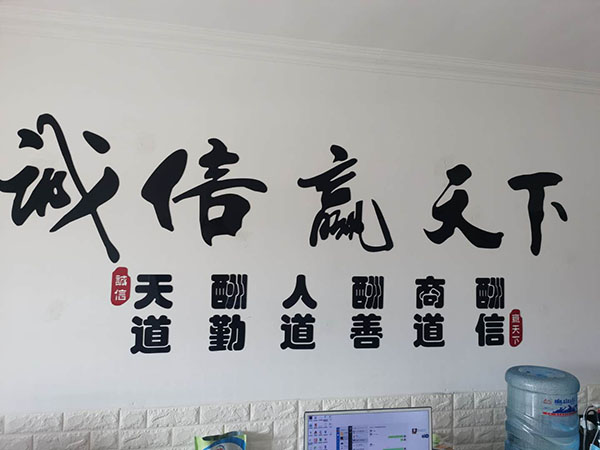 诚信赢天下
誠信
天道
酬勤
人道
酬善
商道
酬信
赢天下